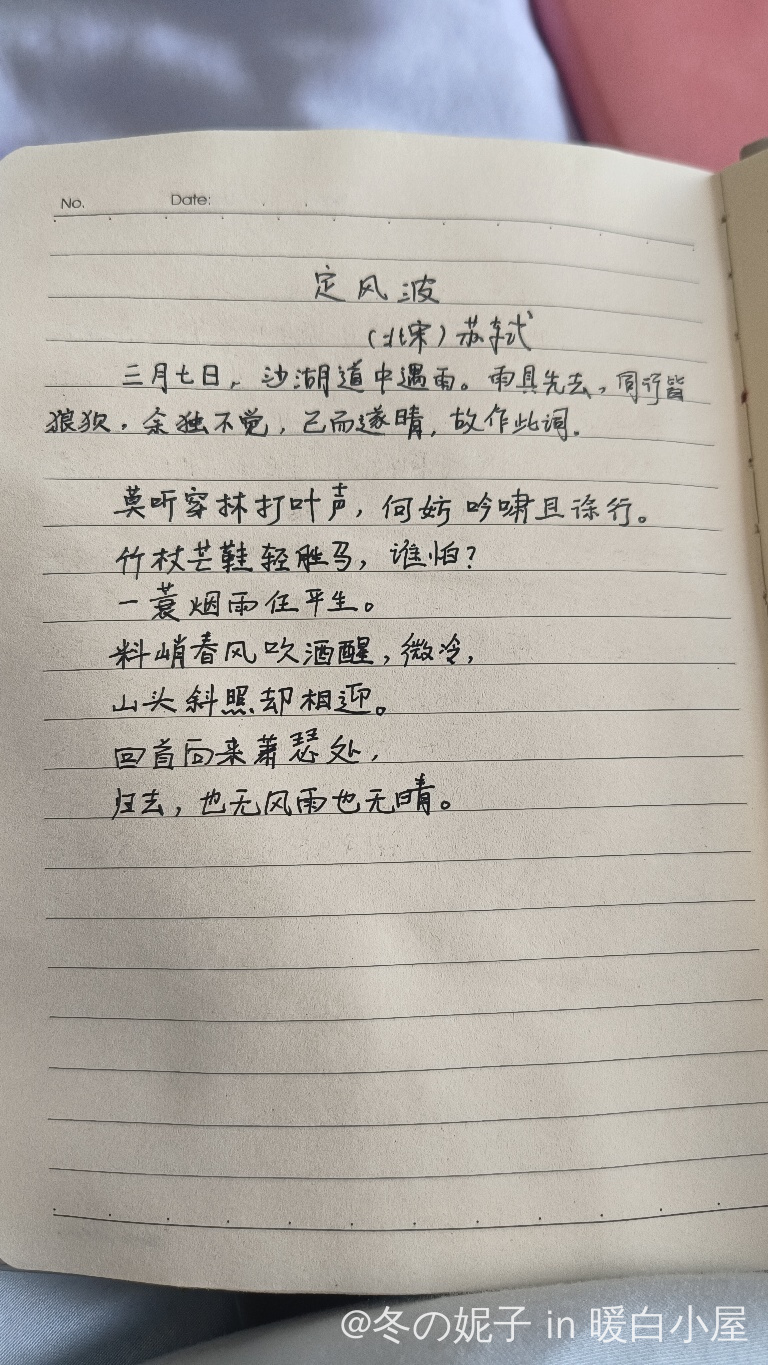 No. Date:
定风波
（北宋）苏轼
三月七日，沙湖道中遇雨。雨具先去，同行皆
狼狈，余独不觉，已而遂晴，故作此词。
莫听穿林打叶声，何妨吟啸且徐行。
竹杖芒鞋轻胜马，谁怕？
一蓑烟雨任平生。
料峭春风吹酒醒，微冷，
山头斜照却相迎。
回首向来萧瑟处，
归去，也无风雨也无晴。
@冬の妮子 in 暖白小屋